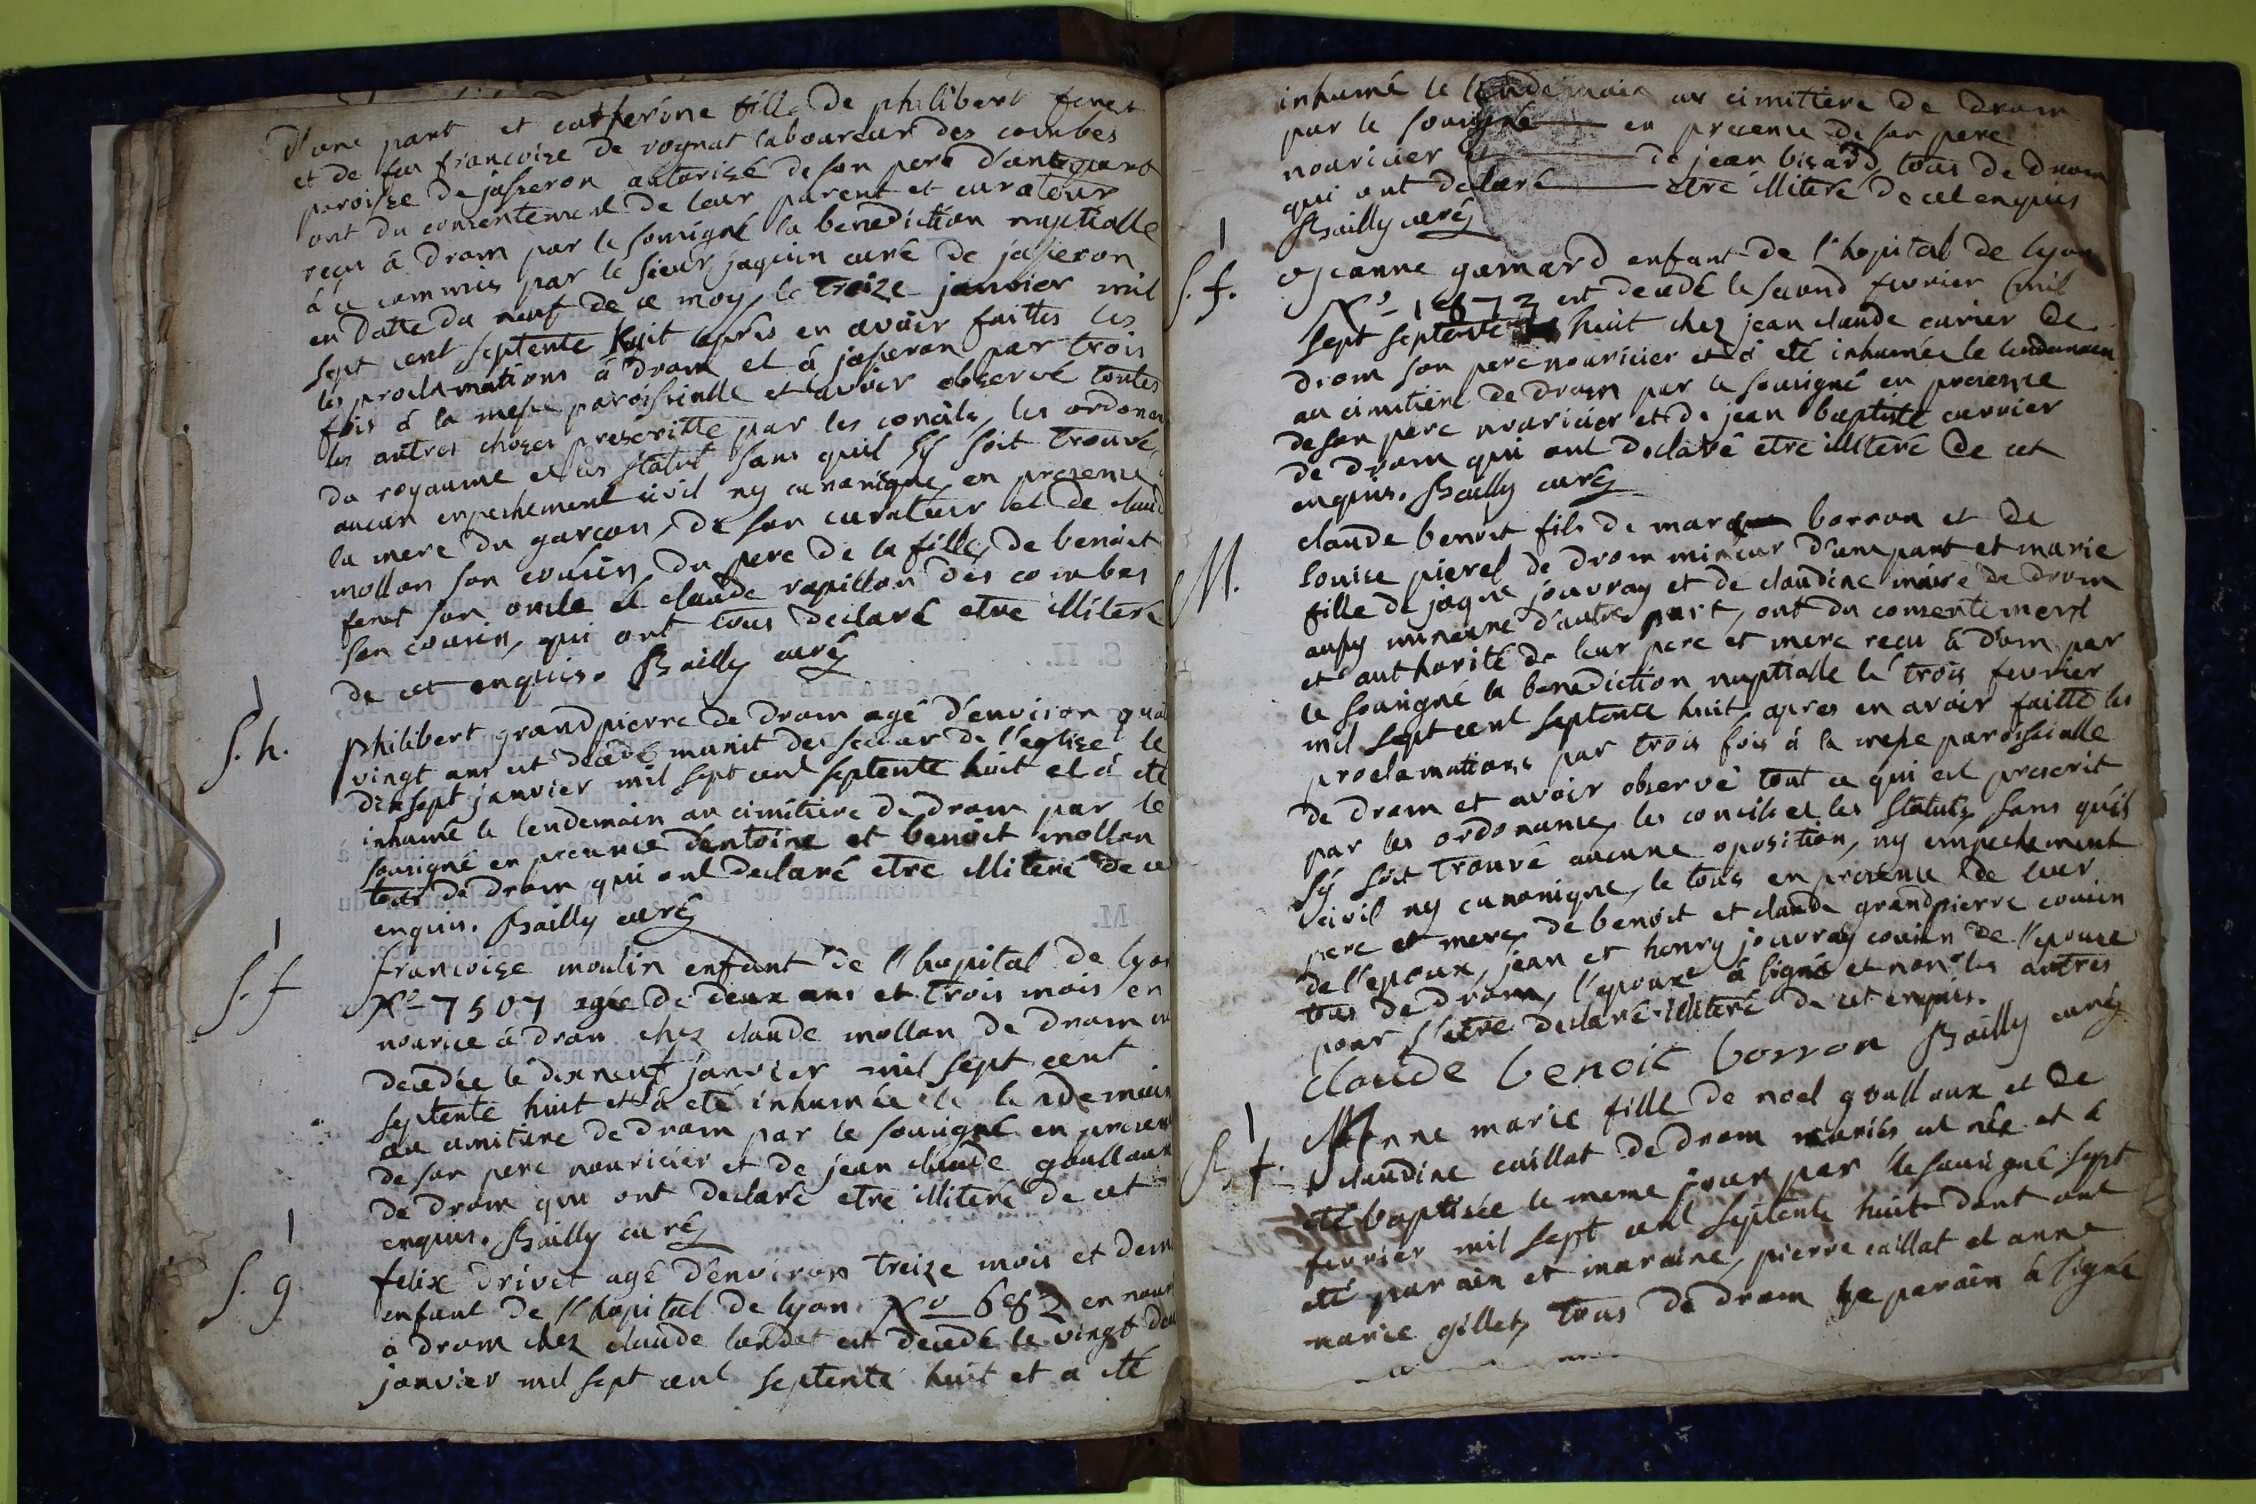 d'une part et catherine fille de philibert feret
et de fuë francoise de rognat laboureur des combes
paroisse de jasseron autorisé de son pere d'autre part
ont du consentement de leur parent et curateur
reçu à drom par le sousigné la benediction nuptialle
à ce commis par le sieur jaquin curé de jasseron
en datte du neuf de ce moy, le treize janvier mil
sept cent septente huit après en avoir faittes les
les proclamations à drom et à jasseron par trois
fois à la messe paroissialle et avoir observé toutes
les autres choses prescritte par les concile, les ordonan
du royaume et les statut, sans quil sy soit trouvé
aucun enpechement civil ny canonique en presence
la mere du garcon, de son curateur et de claud
mollon son cousin, du pere de la fille, de benoit
feret son oncle et claude rapillon des combes
son cousin, qui ont tous declaré etre illiteré
de cet enquis. Bailly curé
S. h.
philibert grandpierre de drom agé d'environ quat
vingt ans est décédé munit des secour de l'eglise le
dixsept janvier mil sept cent septente huit et à eté
inhumé le lendemain au cimitiere de drom par le
sousigné en presence d'entoine et benoit mollon
tous de drom qui ont declaré etre illiteré de ce
enquis. Bailly curé
S. f
francoise moulin enfant de l'hopital de lyon
No 7507 agée de deux ans et trois mois en
nourice à drom chez claude mollon de drom est
decedée le dixneuf janvier mil sept cent
septente huit et à eté inhumée le lendemain
au cimitiere de drom par le sousigné en presen
de son pere nouricier et de jean claude goullaux
de drom qui ont declaré etre illiteré de cet
enquis. Bailly curé
S. g
felix drivet agé d'environ treize mois et demi
enfant de l'hopital de lyon No 682 en nour
à drom chez claude landot est decedé le vingt deu
janvier mil sept cent septente huit et a eté
inhumé le lendemain au cimitiere de drom
par le sousigné en presence de son pere
nouricier et de jean bisard tous de drom
qui ont declaré etre illiteré de cet enquis
Bailly curé
S. f.
jeanne gamard enfant de l'hopital de lyon
No 1673 est decedé le second fevrier mil
sept septente huit chez jean claude carier de
drom son pere nouricier et à eté inhumée le lendemain
au cimitiere de drom par le sousigné en presence
de son pere nouricier et de jean baptiste carrier
de drom qui ont declaré etre illiteré de cet
enquis. Bailly curé
M.
claude benoit fils de marc borron et de
louise pierel de drom mineur d'une part et marie
fille de jaque jouvray et de claudine maire de drom
aussy mineure d'autre part, ont du consentement
et authorité de leur pere et mere recu à drom par
le sousigné la benediction nuptialle le trois fevrier
mil sept cent septente huit apres en avoir faitte les
proclamations par trois fois à la messe paroissialle
de drom et avoir observé tout ce qui est prescrit
par les ordonance, les concile et les statuts sans qu'il
sy soit trouvé aucune oposition, ny empechement
civil ny canonique, le tous en presence de leur
pere et mere, de benoit et claude grandpierre cousin
de l'epoux, jean et henry jouvray cousin de l'epouse
tous de drom, l'epoux à signé et non les autres
pour s'etre declaré illiteré de cet enquis.
claude benoit borron Bailly curé
S. f.
Anne marie fille de noel goullaux et de
claudine caillat de drom mariés est née et à
eté baptisée le meme jour par le sousigné sept
fevrier mil sept cent septente huit dont ont
eté parain et maraine, pierre caillat et anne
marie gillet, tous de drom le parain à signé